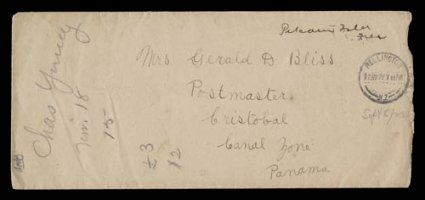 Pitcairn Isles
Free
Mrs Gerald D Bliss
Postmaster
Cristobal
Canal Zone
Panama
WELLINGTON
Chas Young
18
15
£3
12